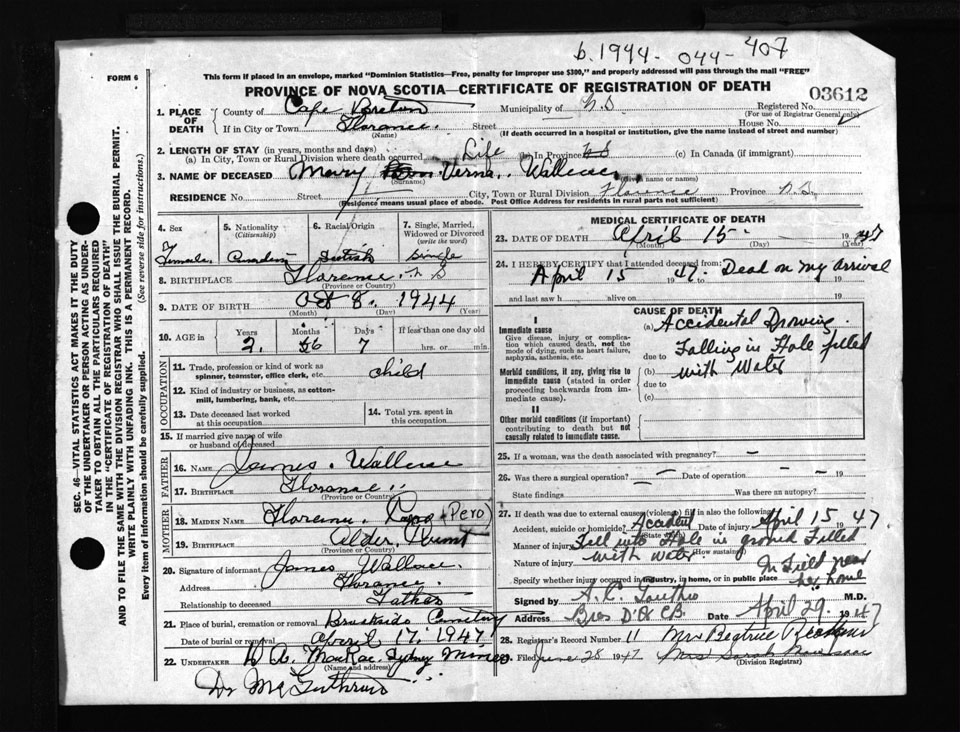 b. 1944 - 044 - 407
This form if placed in an envelope, marked "Dominion Statistics—Free, penalty for improper use $300," and properly addressed will pass through the mail "FREE"
FORM 6
PROVINCE OF NOVA SCOTIA—CERTIFICATE OF REGISTRATION OF DEATH
03612
SEC. 46—VITAL STATISTICS ACT MAKES IT THE DUTY
OF THE UNDERTAKER OR PERSON ACTING AS UNDER-
TAKER TO OBTAIN ALL THE PARTICULARS REQUIRED
IN THE "CERTIFICATE OF REGISTRATION OF DEATH"
AND TO FILE THE SAME WITH THE DIVISION REGISTRAR WHO SHALL ISSUE THE BURIAL PERMIT.
WRITE PLAINLY WITH UNFADING INK. THIS IS A PERMANENT RECORD.
Every item of information should be carefully supplied. (See reverse side for instructions.)
1. PLACE OF DEATH
County of Cape Breton Municipality of N.S Registered No.
(For use of Registrar General only)
If in City or Town Florence. Street House No.
(Name) (If death occurred in a hospital or institution, give the name instead of street and number)
2. LENGTH OF STAY (in years, months and days)
(a) In City, Town or Rural Division where death occurred Life (b) In Province (c) In Canada (if immigrant)
3. NAME OF DECEASED Mary Verna. Wallace
(Surname) (Given name or names)
RESIDENCE No. Street City, Town or Rural Division Florence Province N.S.
(Residence means usual place of abode. Post Office Address for residents in rural parts not sufficient)
4. Sex Female
5. Nationality (Citizenship) Canadian
6. Racial Origin Scotish
7. Single, Married, Widowed or Divorced (write the word) Single
8. BIRTHPLACE Florence N S
(Province or Country)
9. DATE OF BIRTH Oct 8. 1944
(Month) (Day) (Year)
10. AGE in Years Months Days If less than one day old
2. 6 7 hrs. or min.
OCCUPATION
11. Trade, profession or kind of work as spinner, teamster, office clerk, etc. child
12. Kind of industry or business, as cotton-mill, lumbering, bank, etc.
13. Date deceased last worked at this occupation
14. Total yrs. spent in this occupation
15. If married give name of wife or husband of deceased
FATHER
16. NAME James. Wallace
17. BIRTHPLACE Florence
(Province or Country)
MOTHER
18. MAIDEN NAME Florence. (Pero)
19. BIRTHPLACE Alder Point
(Province or Country)
20. Signature of informant James Wallace
Address Florence.
Relationship to deceased Father
21. Place of burial, cremation or removal Brookside Cemetery
Date of burial or removal April 17, 1947
22. UNDERTAKER MacRae. Sydney Mines
(Name and address)
Dr
MEDICAL CERTIFICATE OF DEATH
23. DATE OF DEATH April 15 1947
(Month) (Day) (Year)
24. I HEREBY CERTIFY that I attended deceased from:
April 15 1947. Dead on my arrival
and last saw h alive on 19
CAUSE OF DEATH
I
Immediate cause
Give disease, injury or complication which caused death, not the mode of dying, such as heart failure, asphyxia, asthenia, etc.
(a) Accidental Drowing.
due to Falling in Hole filled
Morbid conditions, if any, giving rise to immediate cause (stated in order proceeding backwards from immediate).
(b) with Water
due to
(c)
II
Other morbid conditions (if important) contributing to death but not causally related to immediate cause.
25. If a woman, was the death associated with pregnancy? —
26. Was there a surgical operation? — Date of operation — 19
State findings Was there an autopsy?
27. If death was due to external causes (violence) fill in also the following:
Accident, suicide or homicide? Accident Date of injury April 15 1947
(State which)
Manner of injury Fell into Hole in ground Filled
(How sustained)
Nature of injury with water
Specify whether injury occurred in industry, in home, or in public place In Field near her home
Signed by M.D.
Address Date April 29. 1947
28. Registrar's Record Number 11 Mrs Beatrice
29. Filed June 28 1947 Mrs Sarah
(Division Registrar)